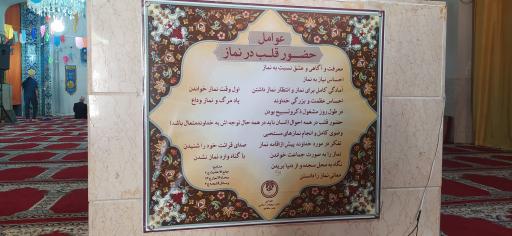 عوامل
حضور قلب در نماز
معرفت و آگاهی و عشق نسبت به نماز
احساس نیاز به نماز
آمادگی کامل برای نماز و انتظار نماز داشتن
اول وقت نماز خواندن
احساس عظمت و بزرگی خداوند
یاد مرگ و نماز وداع
در طول روز مشغول ذکر و تسبیح بودن
حضور قلب در همه احوال انسان باید در همه حال توجه اش به خداوند متعال باشد
وضوی کامل و انجام نمازهای مستحبی
تفکر در مورد خداوند پیش از اقامه نماز
صدای قرائت خود را شنیدن
نماز را به صورت جماعت خواندن
با گناه وارد نماز نشدن
نگاه به محل سجده و از دنیا بریدن
معانی نماز را دانستن